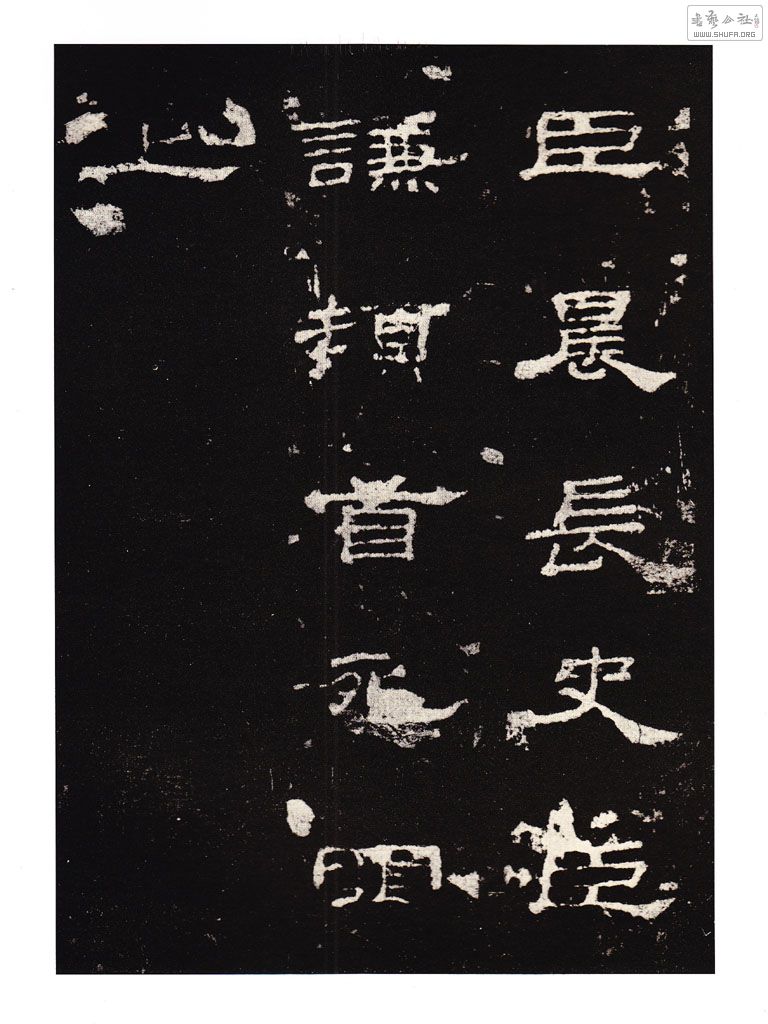 書藝公社
WWW.SHUFA.ORG
臣晨長史臣
謙頓首死罪
上